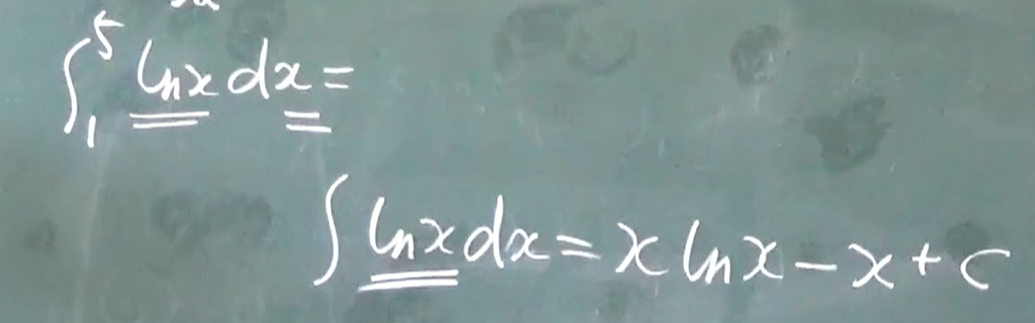 ∫₁⁵ ln x dx =
∫ ln x dx = x ln x − x + c